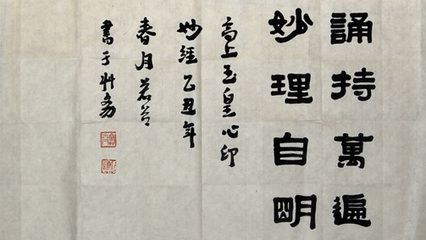 誦持萬遍
妙理自明
高上玉皇心印
妙經乙丑年
春月
書于